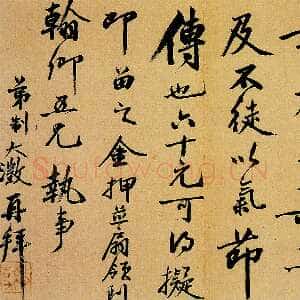 及不徒以氣節
傳也六十元可得擬
即留之金押並扇領到
翰卿五兄執事
弟制大澂再拜